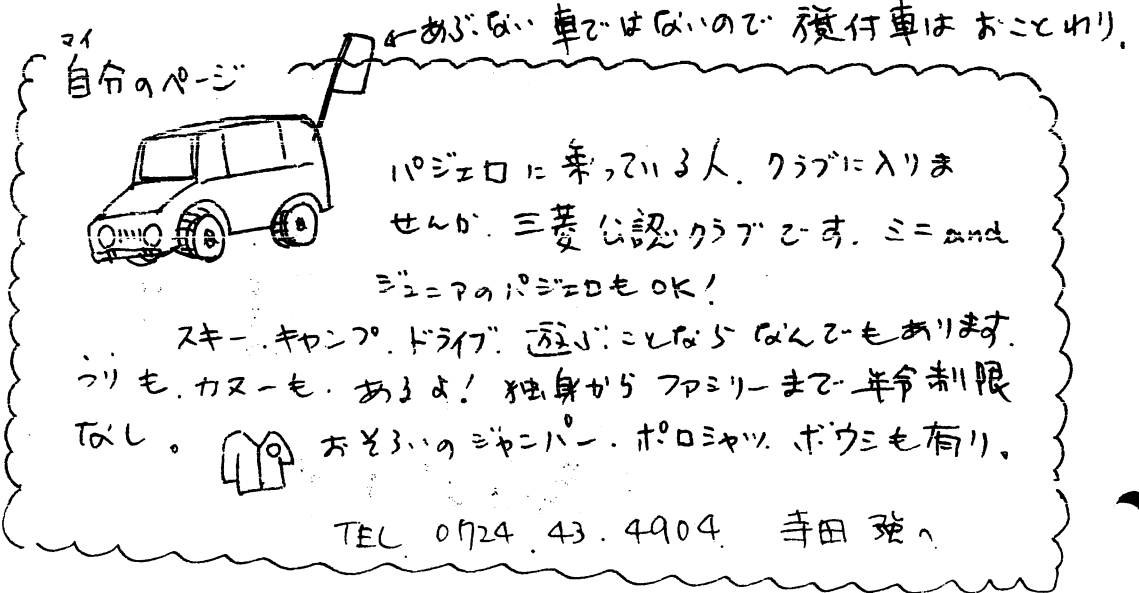 ←あぶない車ではないので 旗付車は おことわり.
マイ
自分のページ
パジェロに乗っている人. クラブに入りま
せんか. 三菱公認クラブです. ミニand
ジュニアのパジェロもOK!
スキー.キャンプ.ドライブ. 遊ぶことなら なんでもあります.
つりも.カヌーも.あるよ! 独身から ファミリーまで 年令制限
なし。 おそろいのジャンパー.ポロシャツ.ボウシも有り。
TEL 0724.43.4904. 寺田 強へ